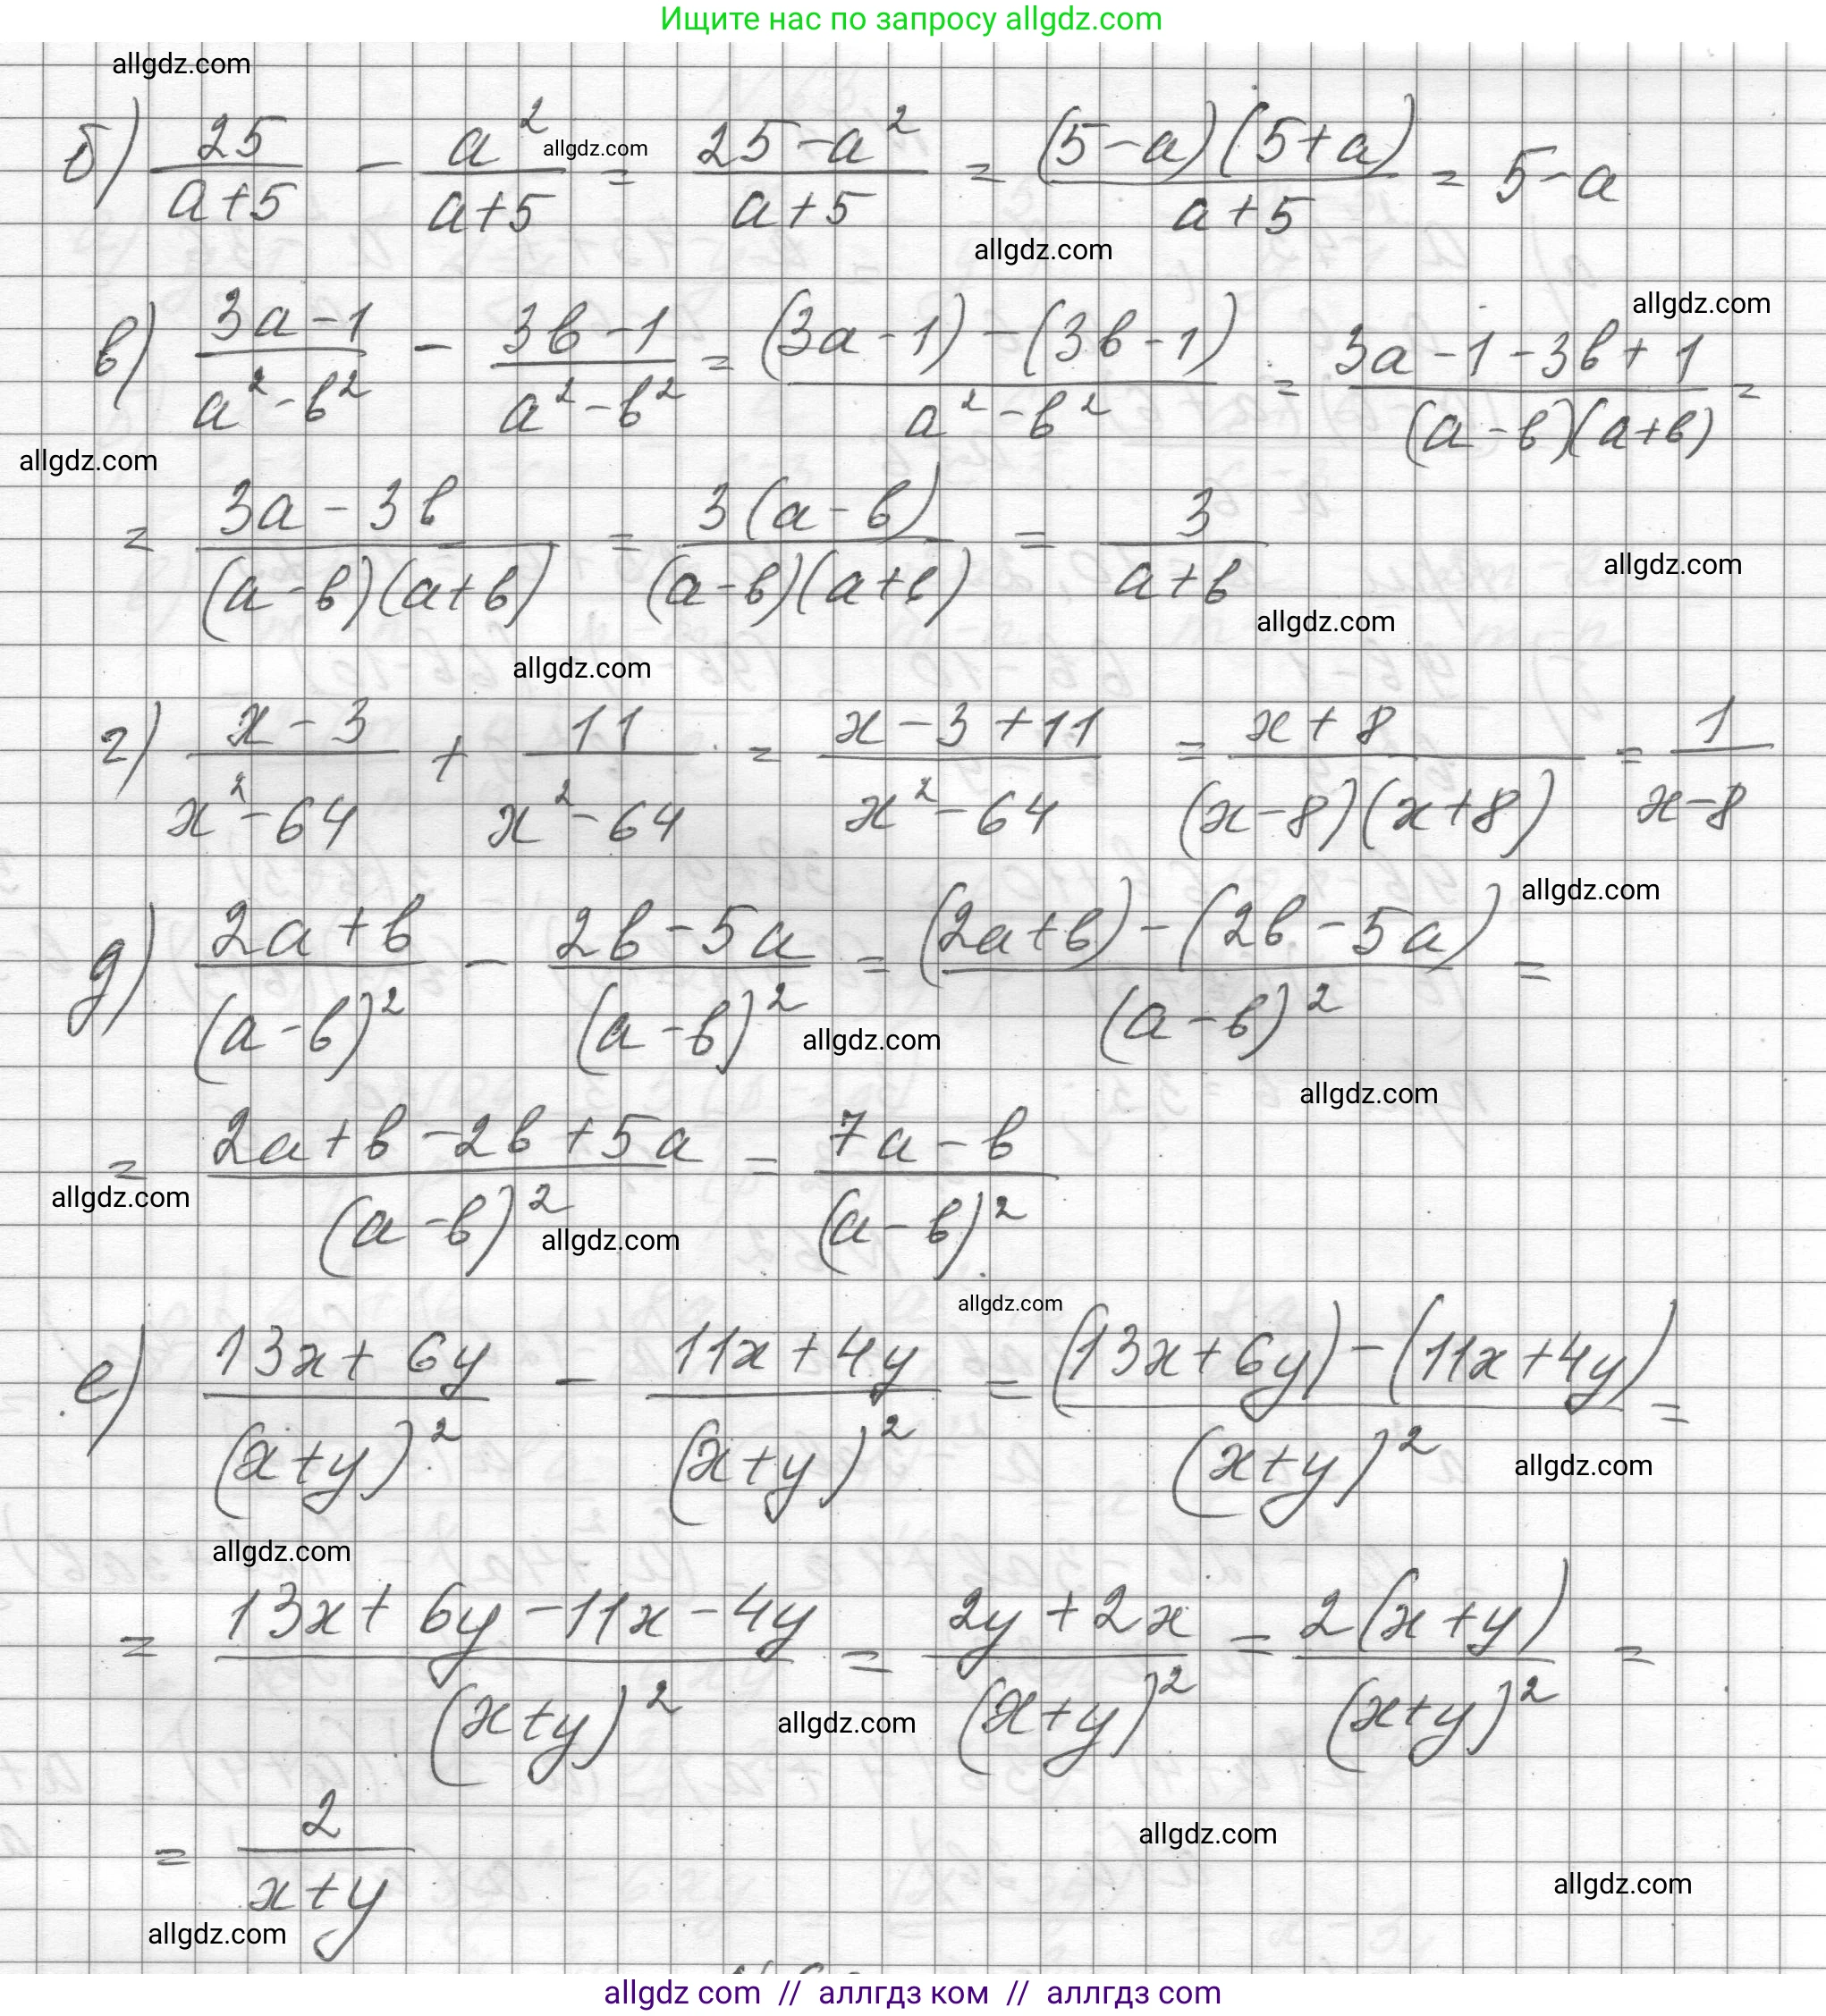 Ищите нас по запросу allgdz.com
allgdz.com
б) 25/(a+5) - a²/(a+5) = (25-a²)/(a+5) = (5-a)(5+a)/(a+5) = 5-a
allgdz.com
allgdz.com
allgdz.com
в) (3a-1)/(a²-b²) - (3b-1)/(a²-b²) = ((3a-1)-(3b-1))/(a²-b²) = (3a-1-3b+1)/((a-b)(a+b)) =
allgdz.com
= (3a-3b)/((a-b)(a+b)) = 3(a-b)/((a-b)(a+b)) = 3/(a+b)
allgdz.com
allgdz.com
allgdz.com
г) (x-3)/(x²-64) + 11/(x²-64) = (x-3+11)/(x²-64) = (x+8)/((x-8)(x+8)) = 1/(x-8)
allgdz.com
д) (2a+b)/(a-b)² - (2b-5a)/(a-b)² = ((2a+b)-(2b-5a))/(a-b)² =
allgdz.com
allgdz.com
= (2a+b-2b+5a)/(a-b)² = (7a-b)/(a-b)²
allgdz.com
allgdz.com
allgdz.com
е) (13x+6y)/(x+y)² - (11x+4y)/(x+y)² = ((13x+6y)-(11x+4y))/(x+y)² =
allgdz.com
allgdz.com
= (13x+6y-11x-4y)/(x+y)² = (2y+2x)/(x+y)² = 2(x+y)/(x+y)² =
allgdz.com
allgdz.com
= 2/(x+y)
allgdz.com
allgdz.com
allgdz com // аллгдз ком // аллгдз com